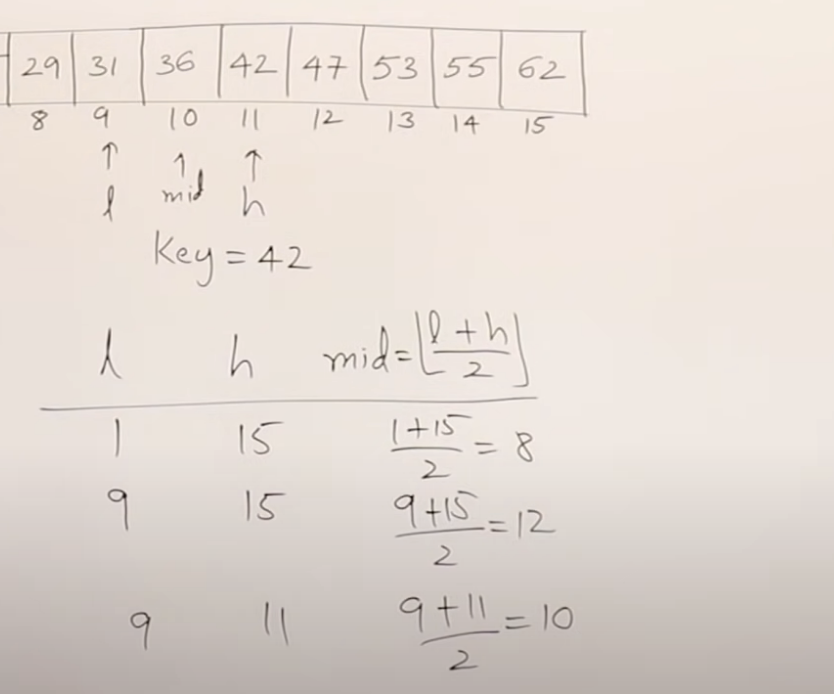 29 31 36 42 47 53 55 62
8 9 10 11 12 13 14 15
↑ ↑ ↑
l mid h
Key = 42
l h mid = ⌊(l + h)/2⌋
1 15 (1+15)/2 = 8
9 15 (9+15)/2 = 12
9 11 (9+11)/2 = 10